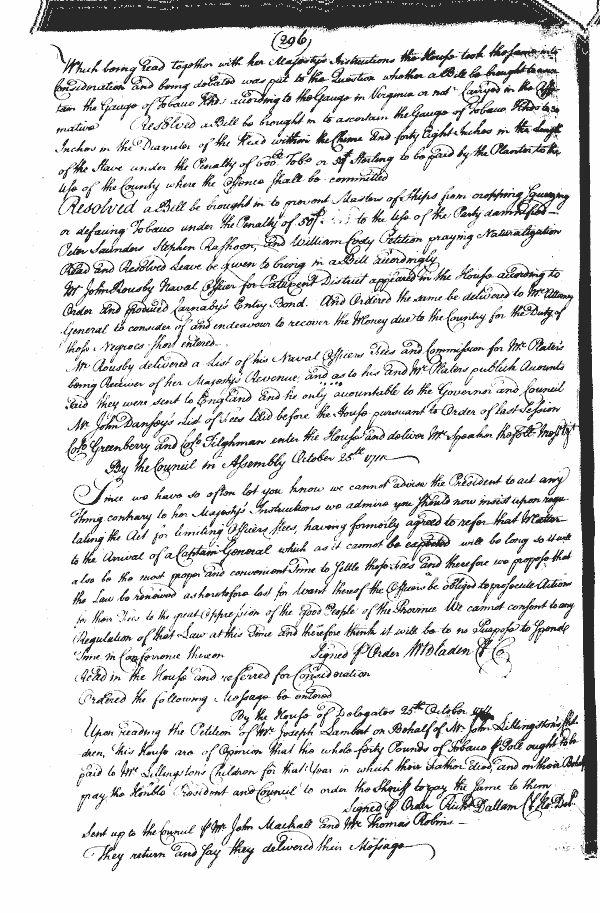 (296)
Which being read together with her Majestys Instructions the House took the same into
Consideration and being debated was put to the Question whether a Bill be brought to ascer
tain the Gauge of Tobacco Hhds according to the Gauge in Virginia or not Carried in the Affir
mative Resolved a Bill be brought in to ascertain the Gauge of Tobacco Hhds to
Inches in the Diameter of the Head within the Chime and forty Eight Inches in the length
of the Stave under the Penalty of Tobo or Sterling to be paid by the Planter to the
Use of the County where the Offence shall be committed
Resolved a Bill be brought in to prevent Masters of Ships from cropping
or defacing Tobacco under the Penalty of to the Use of the Party damnifyed
Peter Saunders Stephen and William Cody Petition praying Naturalization
Read and Resolved Leave be given to bring in a Bill accordingly
Mr John Rousby Naval Officer for Patuxent District appeared in the House according to
Order and produced Carnaby's Entry Bond. And Ordered the same be delivered to Mr Attorney
General to consider of and endeavour to recover the Money due to the Country for the Duty of
those Negroes short entered.
Mr Rousby delivered a List of his Naval Officers Fees and Commission for Mr Platers
being Receiver of her Majestys Revenue, and as to his and Mr Platers publick Accounts
said they were sent to England and he only accountable to the Governor and Council
Mr John List of Fees laid before the House pursuant to Order of last Session
Colo Greenberry and Colo Tilghman enter the House and deliver Mr Speaker
By the Council in Assembly October 25th 1711
Since we have so often let you know we cannot advise the President to act any
thing contrary to her Majestys Instructions we admire you should now insist upon regu
lating the Act for limiting Officers Fees, having formerly agreed to refer that Matter
to the Arrival of a Captain General which as it cannot be expected will be long so it will
also be the most proper and convenient Time to settle those Fees and therefore we propose that
the Law be renewed as heretofore lest for Want thereof the Officers be obliged to prosecute Actions
for their Fees to the great Oppression of the Good People of the Province We cannot consent to any
Regulation of that Law at this Time and therefore think it will be to no Purpose to spend
Time in Conference thereon Signed p Order W Bladen Cl C
Read in the House and referred for Consideration
Ordered the following Message be entered
By the House of Delegates 25th October 1711
Upon reading the Petition of Mr Joseph Lambert on Behalf of Mr John Lillingston's Chil
dren, this House are of Opinion that the whole forty Pounds of Tobacco p Poll ought to be
paid to Mr Lillingstons Children for that Year in which their Father died, and on their Behalf
pray the Honble President and Council to order the Sheriff to pay the same to them
Signed p Order Richd Dallam Cl Ho Del
Sent up to the Council p Mr John Mackall and Mr Thomas Robins
They return and say they delivered their Message